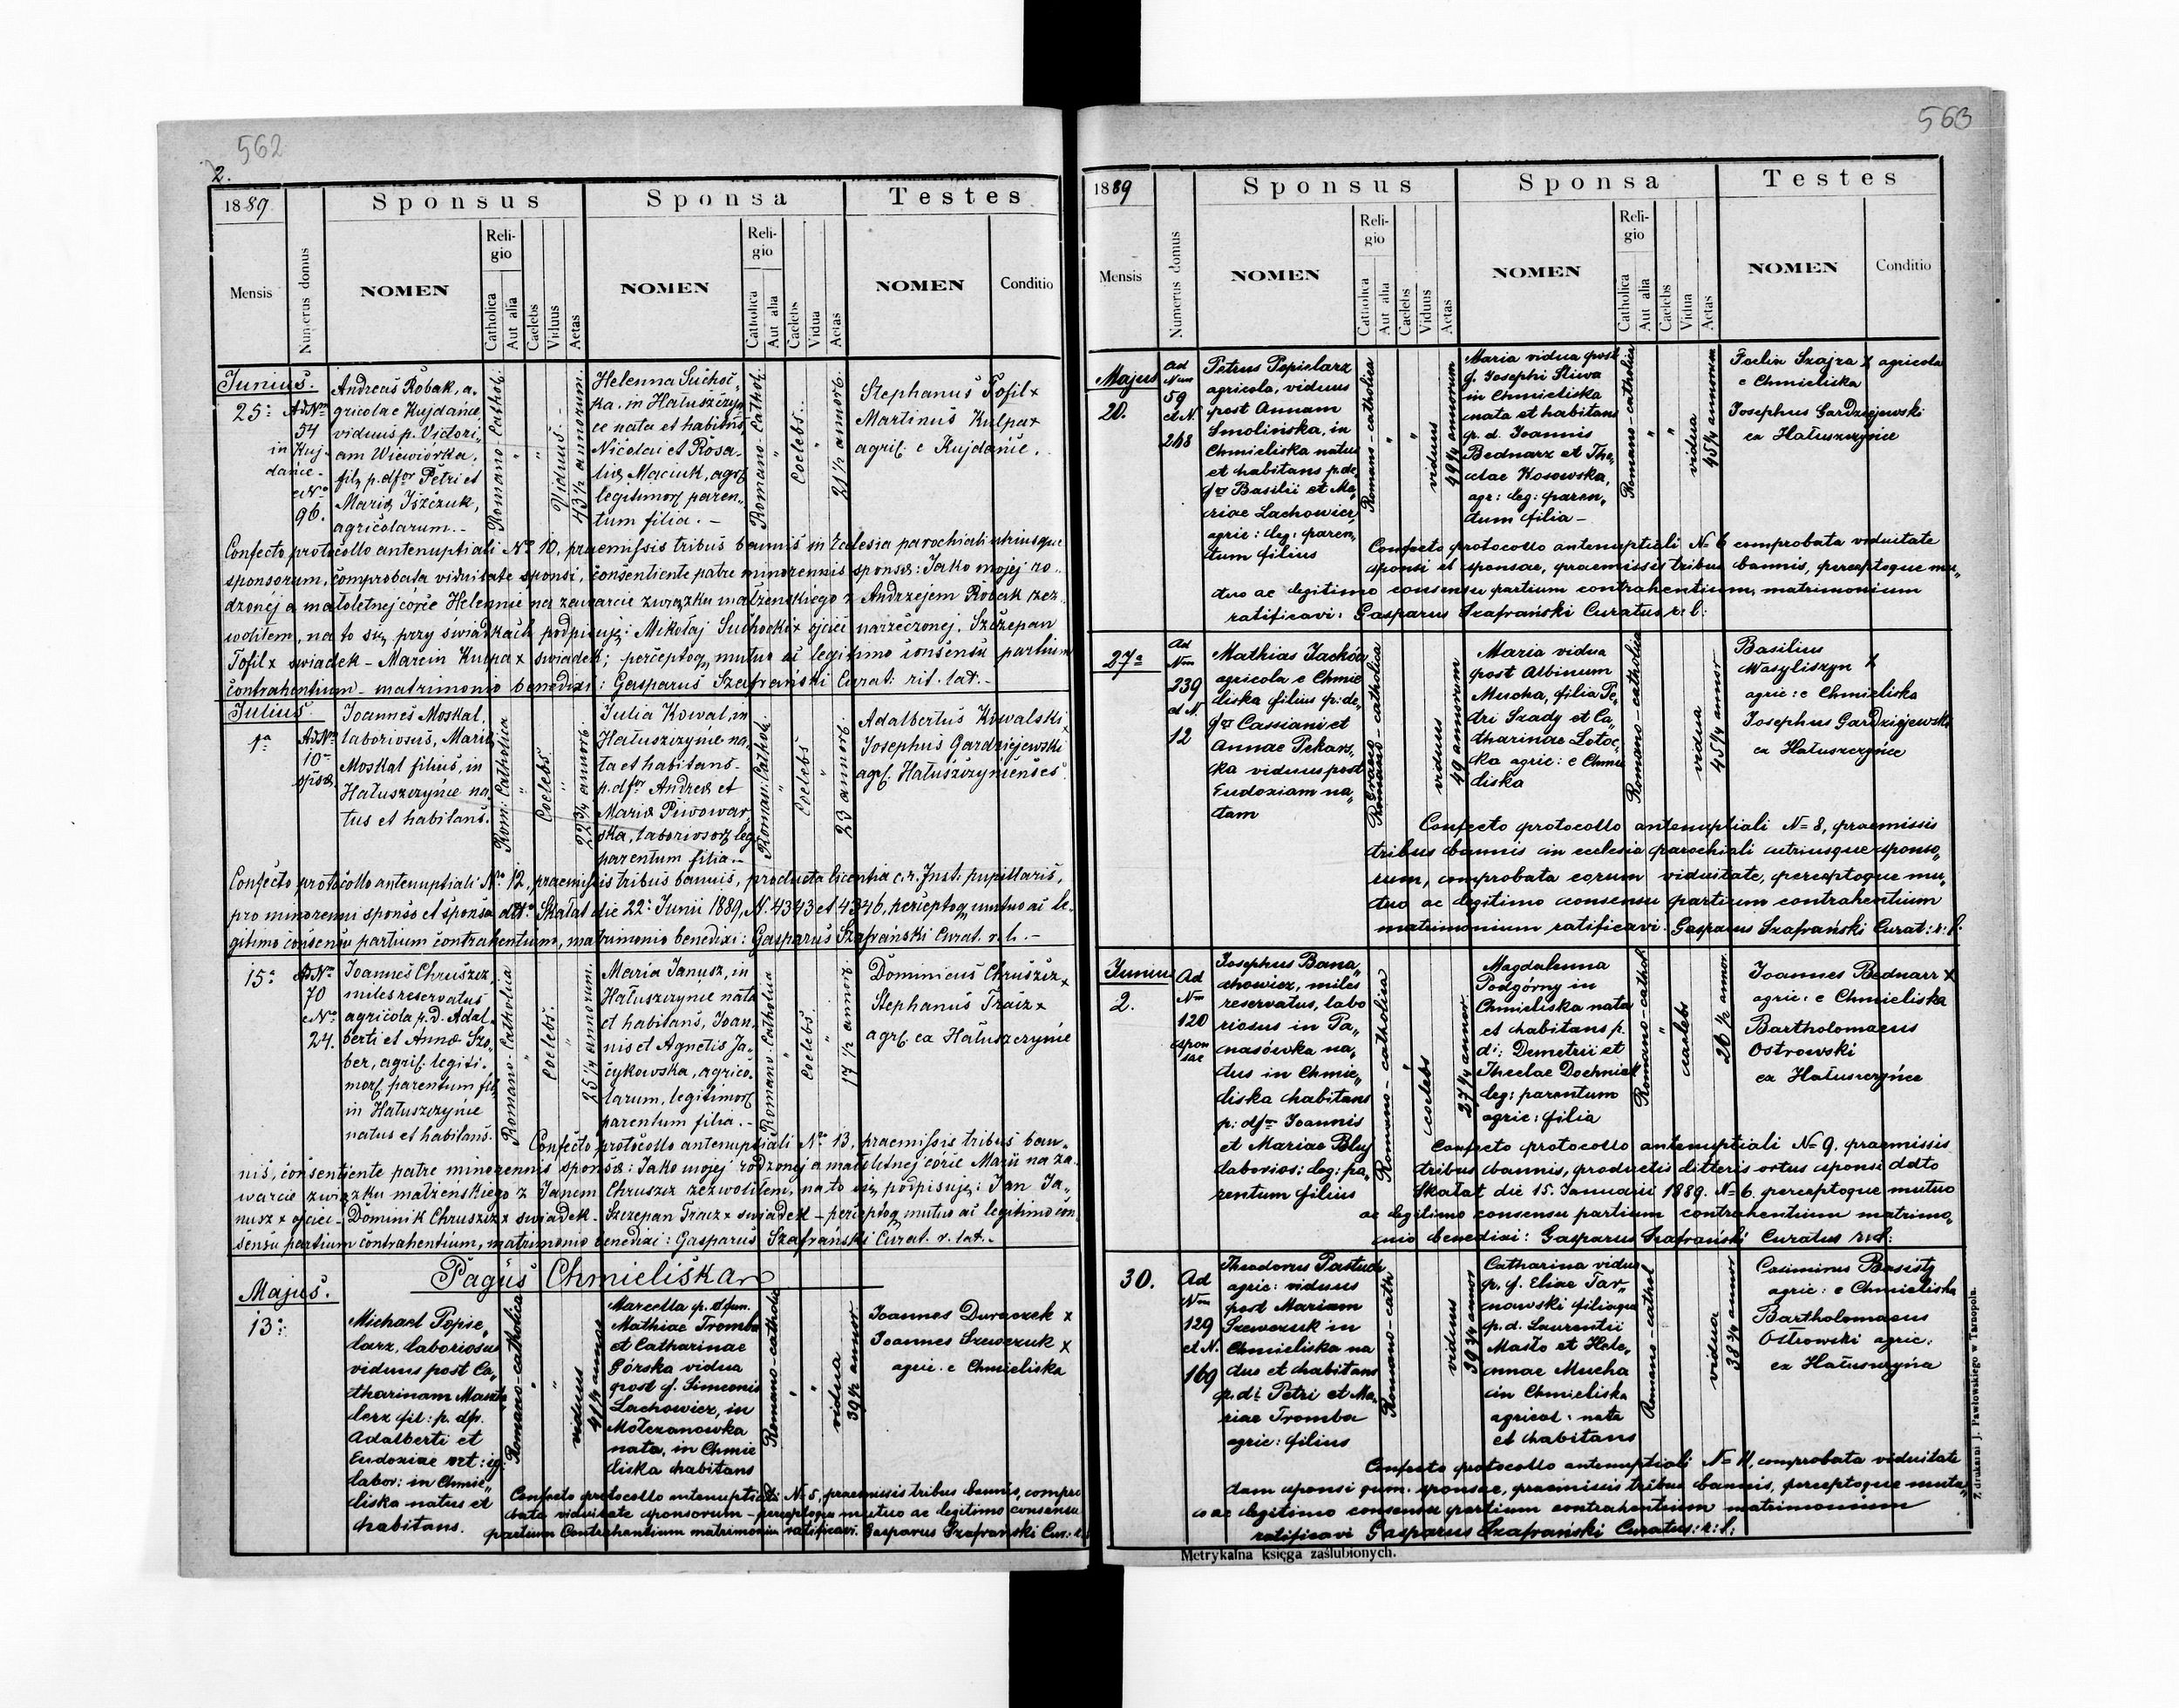 562
2.
1889.
Sponsus
Sponsa
Testes
Mensis
Numerus domus
NOMEN
Religio
Catholica
Aut alia
Caelebs
Viduus
Aetas
NOMEN
Religio
Catholica
Aut alia
Caelebs
Vidua
Aetas
NOMEN
Conditio
Junius.
25a
Ad Nm
54
in Kuj-
dańce.
et No
96.
Andreas Robak, a-
gricola e Kujdańce,
viduus p. Victori-
am Wiewiorka,
fil. p. dfor Petri et
Mariæ Iszczuk,
agricolarum.-
Romano-Cathol.
"
"
Viduus.-
43½ annorum.
Helenna Suchoc-
ka, in Hałuszczyń-
ce nata et habitans,
Nicolai et Rosa-
liæ Maciuk, agr.
legitimor. paren-
tum filia.-
Romano-Cathol.
"
Coelebs.
"
21½ annor.
Stephanus Tofil x
Martinus Kulpa x
agric. e Kujdańce.
Confecto protocollo antenuptiali No 10, praemissis tribus bannis in Ecclesia parochiali utriusque
sponsorum, comprobata viduitate sponsi, consentiente patre minorennis sponsæ: Jako mojej ro-
dzonéj a małoletnej córce Helennie na zawarcie związku małżeńskiego z Andrzejem Robak zez-
woliłem, na to się przy świadkach podpisuję: Mikołaj Suchocki x ojciec narzeczonej. Szczepan
Tofil x swiadek - Marcin Kulpa x swiadek; perceptoq mutuo ac legitimo consensu partium
contrahentium - matrimonio benedixi: Gasparus Szafrański Curat. rit. lat.-
Julius.
1a
Ad No
10
spsæ
Joannes Moskal,
laboriosus, Mariæ
Moskal filius, in
Hałuszczyńce na-
tus et habitans.
Rom: Catholica
"
Coelebs.
"
22¾ annor.
Julia Kowal, in
Hałuszczyńce na-
ta et habitans-
p. dfor Andreæ et
Mariæ Piwowar-
ska, laboriosor. leg.
parentum filia.-
Roman: Cathol.
"
Coelebs
"
23 annor.
Adalbertus Kowalski x
Josephus Gardziejewski
agr. Hałuszczynienses
Confecto protocollo antenuptiali No 12, praemissis tribus bannis, producta licentia c. r. Inst. pupillaris,
pro minorenni sponso et sponsa ddto Skałat die 22a Junii 1889, N. 4343 et 4346, perceptoq mutuo ac le-
gitimo consensu partium contrahentium, matrimonio benedixi: Gasparus Szafrański Curat. r. l.-
15a
Ad No
70
et No
24.
Joannes Chruszcz,
miles reservatus
agricola p. D. Adal-
berti et Annæ Szo-
ber, agric. legiti-
mor. parentum fil.
in Hałuszczyńce
natus et habitans.
Romano-Catholica
"
Coelebs.
"
25¼ annorum
Maria Janusz, in
Hałuszczyńce nata
et habitans, Joan-
nis et Agnetis Ja-
cykowska, agrico-
larum, legitimor.
parentum filia.-
Romano-Catholica
"
Coelebs.
"
17½ annor.
Dominicus Chruszcz x
Stephanus Tracz x
agr. ex Hałuszczyńce
Confecto protocollo antenuptiali No 13, praemissis tribus ban-
nis, consentiente patre minorennis sponsæ: Jako mojej rodzonej a małoletnej córce Maryi na za-
warcie związku małżeńskiego z Janem Chruszcz zezwoliłem, na to się podpisuję: Jan Ja-
nusz x ojciec - Dominik Chruszcz x swiadek - Szczepan Tracz x swiadek - perceptoq mutuo ac legitimo con-
sensu partium contrahentium, matrimonio benedixi: Gasparus Szafrański Curat. r. lat.-
Pagus Chmieliska
Majus.
13a
Michael Popie-
larz, laboriosus
viduus post Ca-
tharinam
fil: p. dfr.
Adalberti et
Eudoxiae
labor: in Chmie-
liska natus et
habitans.
Romano-catholica
"
"
viduus
41½ annos
Marcella p. defun.
Mathiae Tromba
et Catharinae
Górska vidua
post f. Simeonis
Lachowicz, in
Mołczanowka
nata, in Chmie
liska habitans
Romano-catholica
"
"
vidua
39½ annor.
Joannes Duraczek x
Joannes Szewczuk x
agric. e Chmieliska
Confecto protocollo antenuptiali No 5, praemissis tribus bannis, compro
bata viduitate sponsorum - perceptoque mutuo ac legitimo consensu
partium Contrahentium matrimonium ratificavi. Gasparus Szafrański Cur: r. l.
563
1889
Sponsus
Sponsa
Testes
Mensis
Numerus domus
NOMEN
Religio
Catholica
Aut alia
Caelebs
Viduus
Aetas
NOMEN
Religio
Catholica
Aut alia
Caelebs
Vidua
Aetas
NOMEN
Conditio
Majus
20.
ad
Num
59
et N.
248
Petrus Popielarz
agricola, viduus
post Annam
Smolińska, in
Chmieliska natus
et habitans p. de-
for Basilii et Ma-
riae Lachowicz,
agric: leg: paren-
tum filius
Romano-catholica
"
"
viduus
49¼ annorum
Maria vidua post
f. Josephi Śliwa
in Chmieliska
nata et habitans
p. d. Joannis
Bednarz et The-
clae Kosowska,
agr: leg: paren-
tum filia -
Romano-catholica
"
"
vidua
45¼ annorum
Szajra x agricola
e Chmieliska
Josephus Gardziejewski
ex Hałuszczyńce
Confecto protocollo antenuptiali No 6 comprobata viduitate
sponsi et sponsae, praemissis tribus bannis, perceptoque mu-
tuo ac legitimo consensu partium contrahentium, matrimonium
ratificavi: Gasparus Szafrański Curatus r: l:
27a
Ad
Num
239
et N.
12
Mathias Jachow
agricola e Chmie
liska filius p: de-
for Cassiani et
Annae Pekars-
ka viduus post
Eudoxiam na-
tam
Graeco-catholica
viduus
49 annorum
Maria vidua
post Albinum
Mucha, filia Pe-
tri Szady et Ca-
tharinae Lotoc-
ka agric: e Chmie
liska
Romano-catholica
vidua
45¼ annor
Basilius
Wasyliszyn x
agric: e Chmieliska
Josephus Gardziejewski
ex Hałuszczyńce
Confecto protocollo antenuptiali No 8, praemissis
tribus bannis in ecclesia parochiali utriusque sponso-
rum, comprobata eorum viduitate, perceptoque mu-
tuo ac legitimo consensu partium contrahentium
matrimonium ratificavi. Gasparus Szafrański Curat: r: l:
Junius
2.
Ad
Num
120
spon
sae
Josephus Bana-
chowicz, miles
reservatus, labo
riosus in Pa-
nasówka na-
tus in Chmie-
liska habitans
p: dfor Joannis
et Mariae Bluj
laborios: leg: pa-
rentum filius
Romano-catholica
"
coelebs
27¼ annor.
Magdalenna
Podgórny in
Chmieliska nata
et habitans p.
d: Demetrii et
Theclae Dochniak
leg: parentum
agric: filia
Romano-cathol
"
caelebs
26½ annor.
Joannes Bednarz x
agric: e Chmieliska
Bartholomaeus
Ostrowski
ex Hałuszczyńce
Confecto protocollo antenuptiali No 9, praemissis
tribus bannis, productis litteris ortus sponsi ddto
Skałat die 15. Januarii 1889. No 6. perceptoque mutuo
ac legitimo consensu partium contrahentium matrimo-
nio benedixi: Gasparus Szafrański Curatus r: l:
30.
Ad
Num
129
et N.
169
Theodorus Pastuch
agric: viduus
post Mariam
Szewczuk in
Chmieliska na
tus et habitans
p. d: Petri et Ma-
riae Tromba
agric: filius
Romano-cath.
viduus
39¾ annor
Catharina vidua
p. f. Eliae Tar-
nowski filiaque
p. d. Laurentii
Masło et Hele-
nnae Mucha
in Chmieliska
agricol: nata
et habitans
Romano-cathol
vidua
38¾ annor
Casimirus Basisty
agric: e Chmieliska
Bartholomaeus
Ostrowski agric:
ex Hałuszczyńce
Confecto protocollo antenuptiali No 11, comprobata viduitate
tam sponsi qum. sponsae, praemissis tribus bannis, perceptoque mutu-
o ac legitimo consensu partium contrahentium matrimonium
ratificavi Gasparus Szafrański Curatus: r: l:
Metrykalna księga zaślubionych.
Z drukarni J. Pawłowskiego w Tarnopolu.